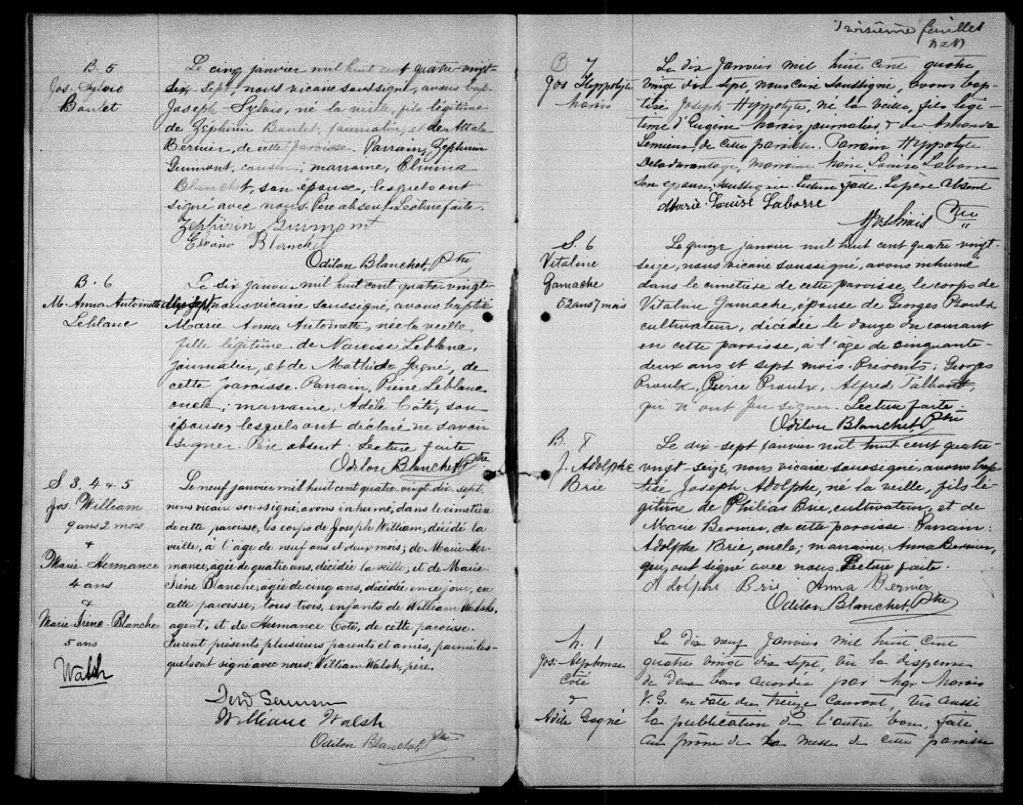 B. 5
Jos. Sylvio
Boulet
Le cinq janvier mil huit cent quatre-vingt-
dix-sept, nous vicaire soussigné, avons bap-
Joseph Sylvio, né la veille, fils légitime
de Zéphirin Boulet, journalier, et de Attala
Bernier, de cette paroisse. Parrain, Zéphirin
Guimont, cousin; marraine, Elmina
Blanchet, son épouse, lesquels ont
signé avec nous. Père absent. Lecture faite.
Zephirin Guimont
Blanchet
Odilon Blanchet, Ptre
B. 6
M. Anna Antoinette
Leblanc
Le six janvier mil huit cent quatre-vingt-
dix-sept, nous vicaire soussigné, avons baptisé
Marie Anna Antoinette, née la veille,
fille légitime de Narcisse Leblanc,
journalier, et de Mathilde Gagné, de
cette paroisse. Parrain, Pierre Leblanc
oncle; marraine, Adèle Coté, son
épouse, lesquels ont déclaré ne savoir
signer. Père absent. Lecture faite
Odilon Blanchet, Ptre
S 3, 4 & 5
Jos. William
9 ans 2 mois
+
Marie-Hermance
4 ans
&
Marie-Irène-Blanche
5 ans
Walsh
Le neuf janvier mil huit cent quatre vingt dix-sept,
nous vicaire soussigné, avons inhumé, dans le cimetière
de cette paroisse, les corps de Joseph William, décédé la
veille, à l'âge de neuf ans et deux mois; de Marie Her-
mance, agée de quatre ans, décédée la veille; et de Marie-
Irène Blanche, agée de cinq ans, décédée, en ce jour, en
cette paroisse; tous trois, enfants de William Walsh,
agent, et de Hermance Coté, de cette paroisse.
Furent présents plusieurs parents et amis, parmi les-
quels ont signé avec nous; William Walsh, père,
William Walsh
Odilon Blanchet, Ptre
Troisième feuillet
B 7
Jos Hyppolyte
Morin
Le dix Janvier mil huit cent quatre
vingt dix sept, nous curé soussigné, avons bap-
tisé Joseph Hyppolyte, né la veille, fils légi-
time d'Eugène Morin, journalier & de Amanda
Lemieux de cette paroisse. Parrain Hyppolyte
Marraine Marie Louise Laborre
son épouse, soussignée. Lecture faite. Le père absent
Marie-Louise Laborre
Ptre
S. 6
Vitaline
Gamache
52 ans 7 mois
Le quinze janvier mil huit cent quatre vingt-
seize, nous vicaire soussigné, avons inhumé
dans le cimetière de cette paroisse, le corps de
Vitaline Gamache, épouse de Georges Proulx
cultivateur, décédée le douze du courant
en cette paroisse, à l'âge de cinquante-
deux ans et sept mois. Présents: Georges
Proulx, Pierre Proulx, Alfred Talbot,
qui n'ont pu signer. Lecture faite.
Odilon Blanchet, Ptre
B. 8
J. Adolphe
Brie
Le dix-sept janvier mil huit cent quatre-
vingt seize, nous vicaire soussigné, avons bap-
tisé Joseph Adolphe, né la veille, fils lé-
gitime de Philias Brie, cultivateur, et de
Marie Bernier, de cette paroisse. Parrain:
Adolphe Brie, oncle; marraine, Anna Bernier,
qui, ont signé avec nous. Lecture faite.
Adolphe Brie Anna Bernier
Odilon Blanchet, Ptre
M. 1
Jos. Alphonse
Coté
&
Adèle Gagné
Le dix neuf Janvier mil huit cent
quatre vingt dix sept, vu la dispense
de deux bans accordée par Mgr Marois
V. G. en date du treize courant, vu aussi
la publication de l'autre ban, faite
au prône de la messe de cette paroisse